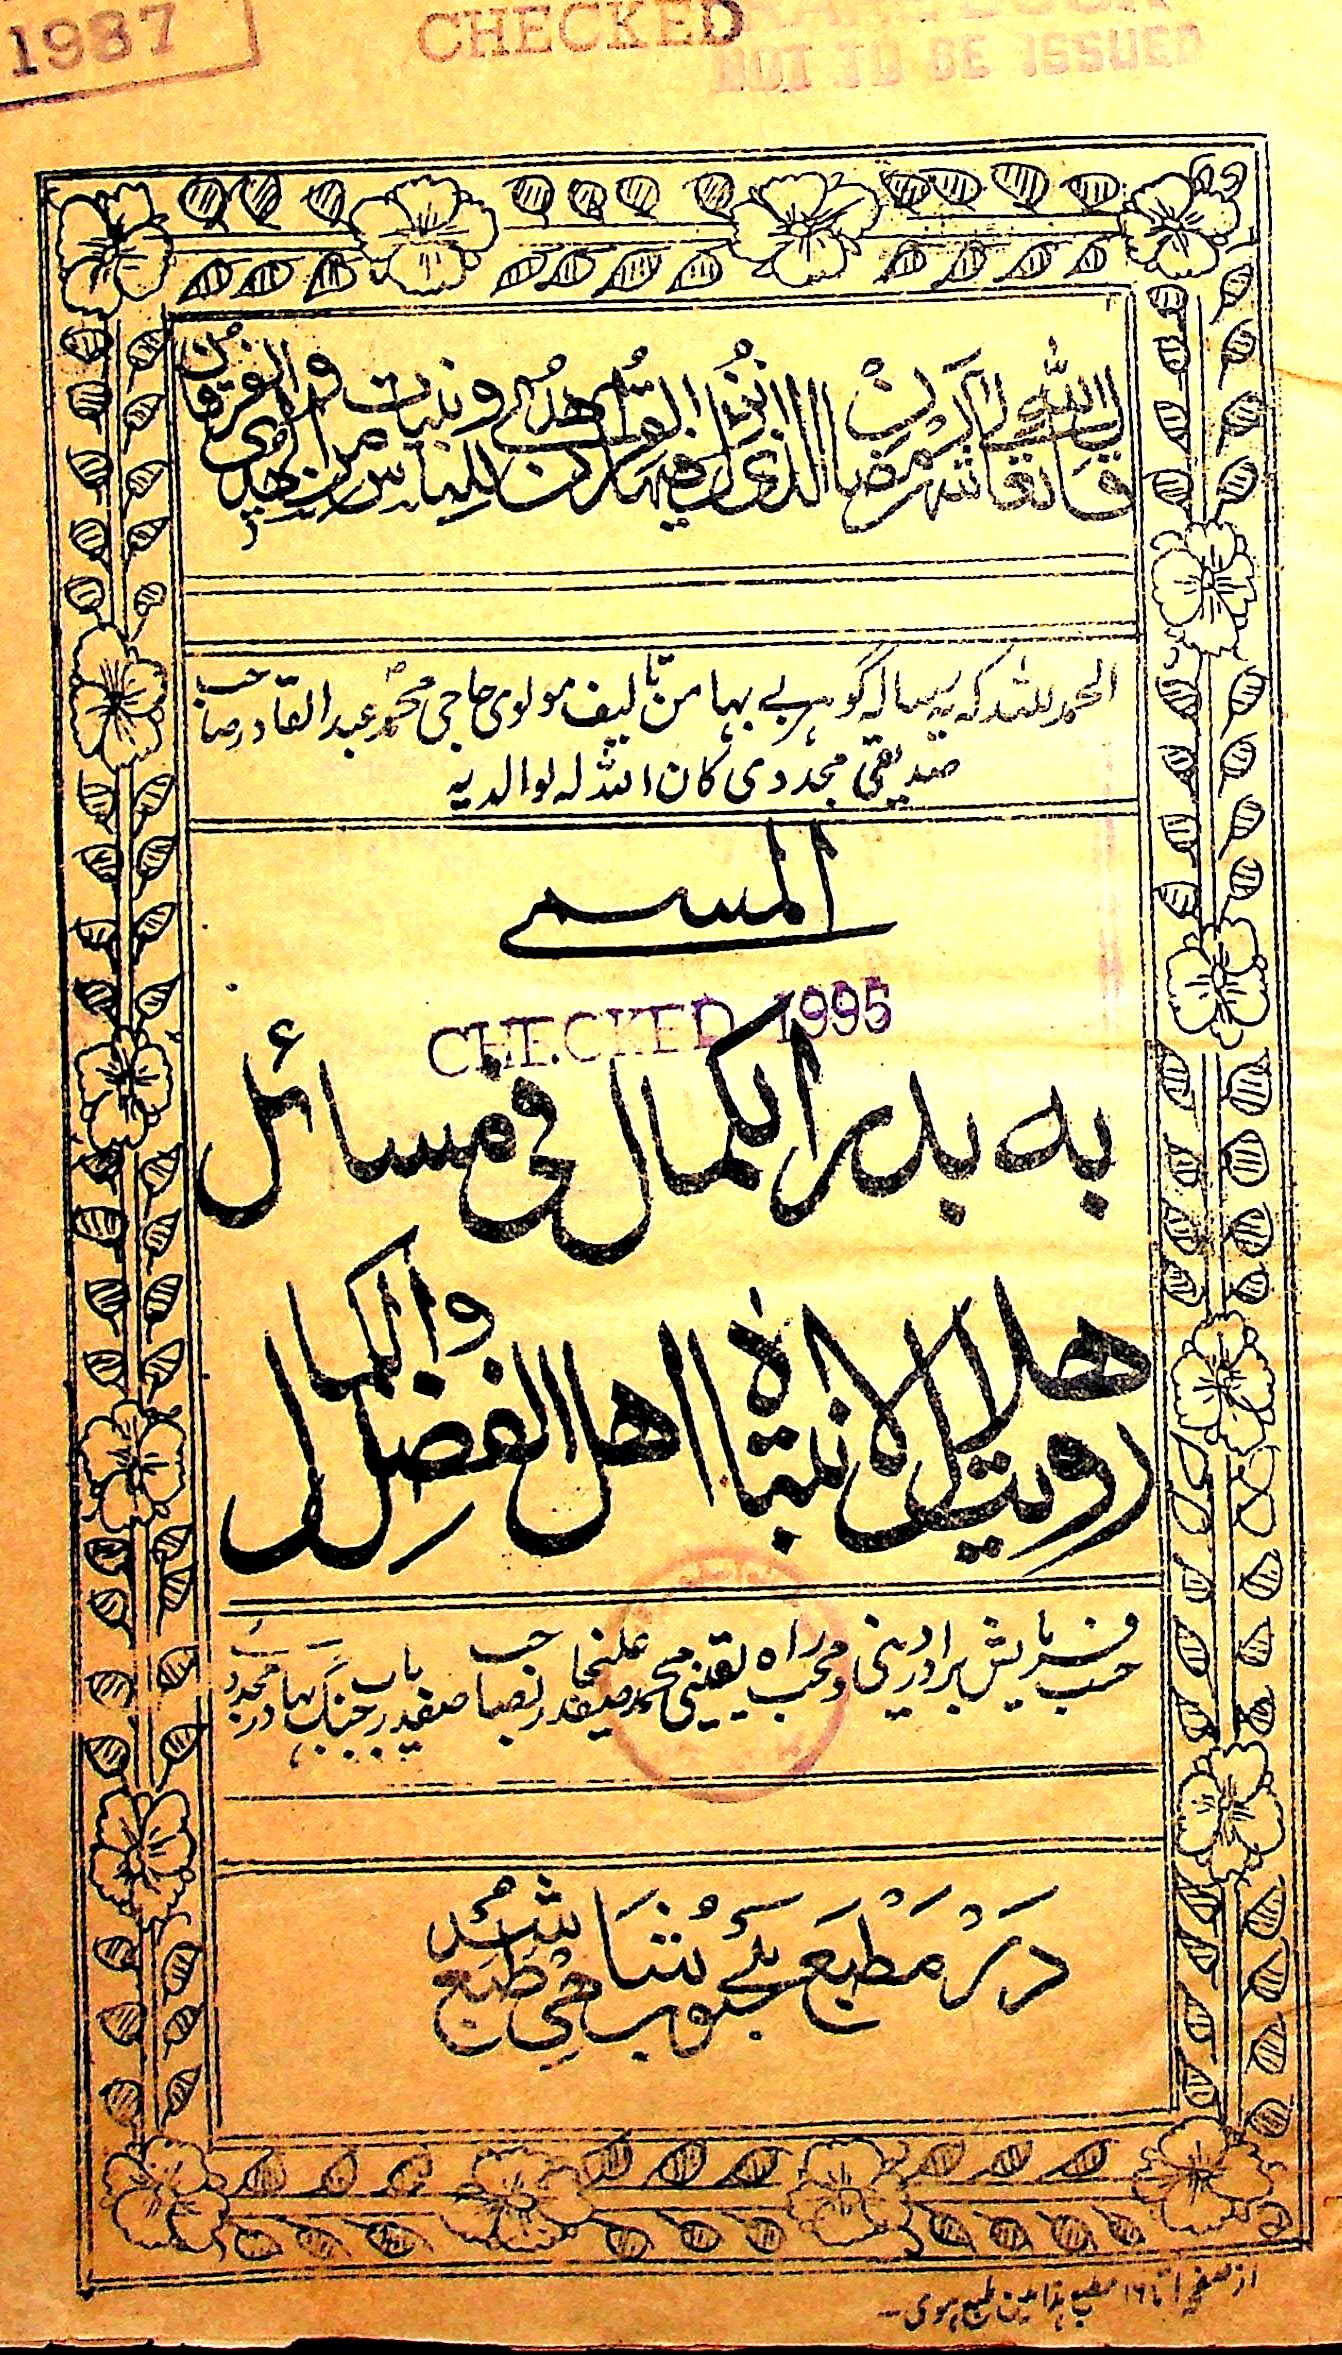 1937
CHECKED
NOT TO BE ISSUED
قال الله تبارك وتعالى شهر رمضان الذى انزل فيه القران هدى للناس وبينات من الهدى والفرقان
الحمد للہ کہ یہ رسالہ گوہر بے بہا من تالیف مولوی حاجی محمد عبد القادر صاحب
صدیقی مجددی کان اللہ لہ لوالدیہ
المسمى
CHECKED 1995
به بدر الكمال فى مسائل
رويت هلال لانتباه اهل الفضل والكمال
حسب فرمایش برادر دینی و محب راہ یقینی محمد صفدر علیخان صاحب صفدر جنگ بہادر
در مطبع محبوب شاهى طبع شد
از صفحہ ۱ تا ۱۶ مطبع ہذا میں طبع ہوی